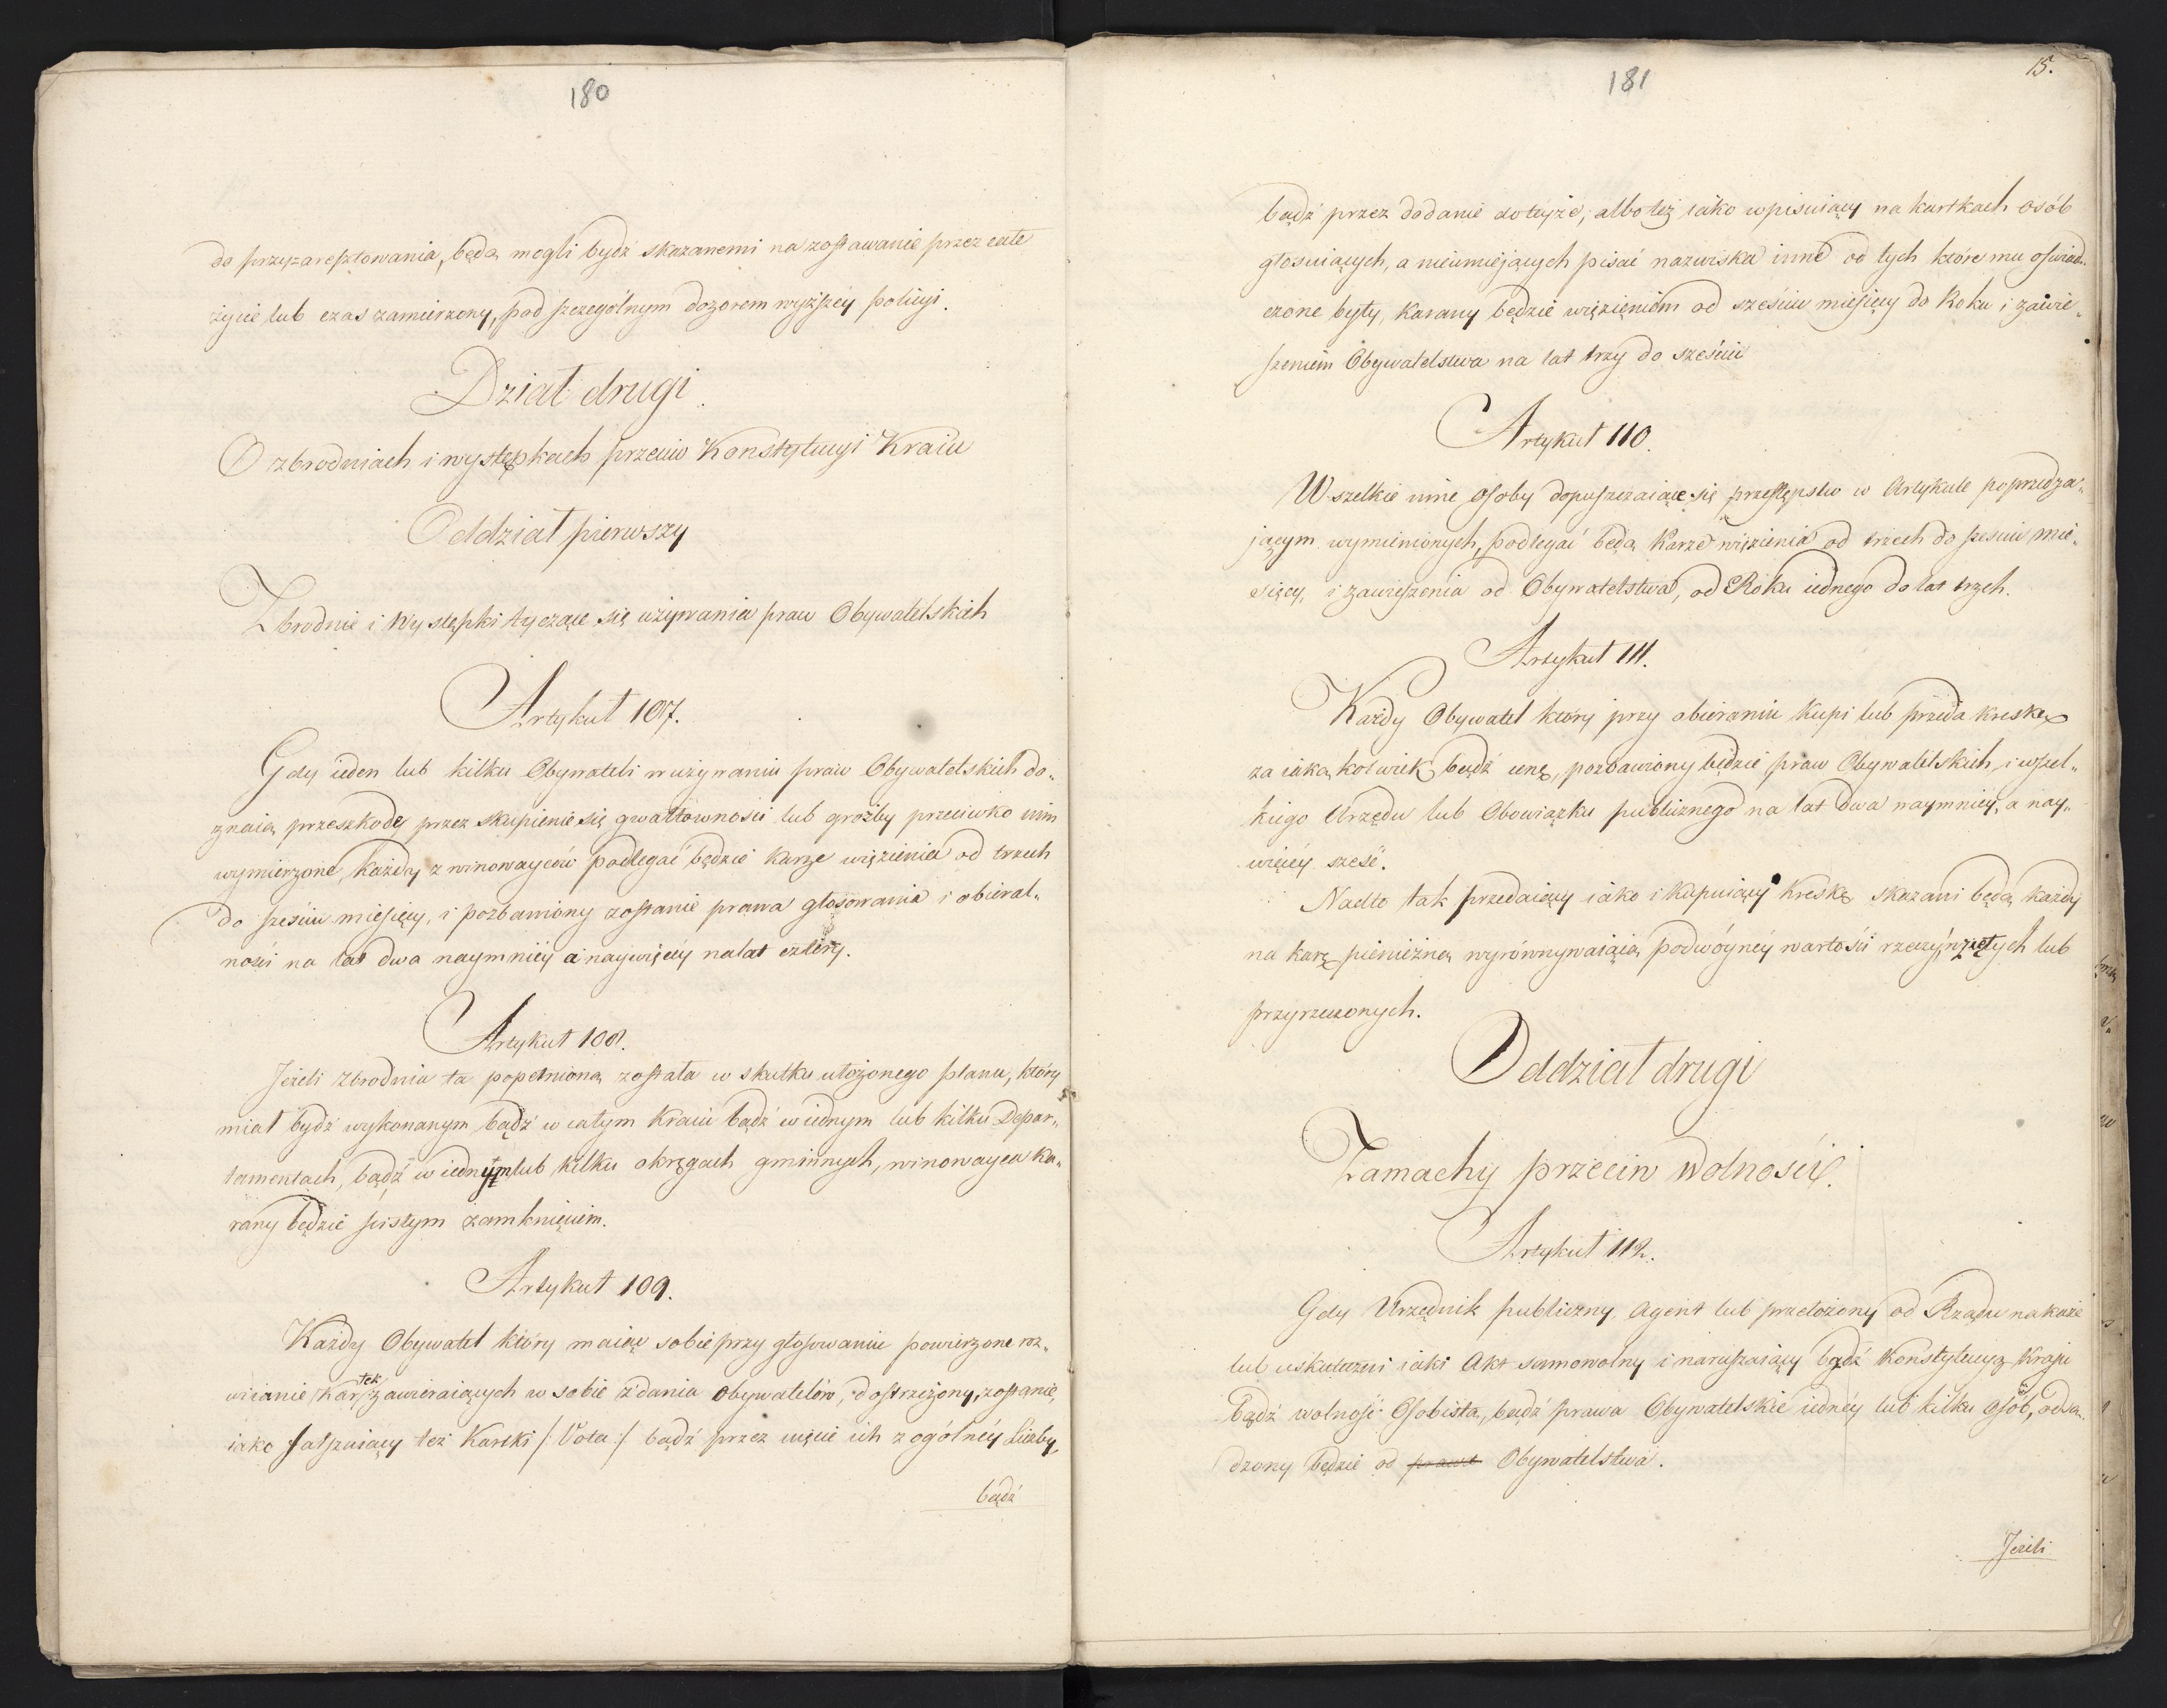 180
do przyaresztowania, będą mogli bydź skazanemi na zostawanie przez całe
życie lub czas zamierzony, pod szczególnym dozorem wyższéy policyi.
Dział drugi.
O zbrodniach i występkach przeciw Konstytucyi Kraiu
Oddział pierwszy
Zbrodnie i Występki tyczące się używania praw Obywatelskich
Artykuł 107.
Gdy ieden lub kilku Obywateli w używaniu praw Obywatelskich do„
znaią przeszkody przez skupienie się gwałtowności lub groźby przeciwko nim
wymierzone, każdy z winowayców podlegać będzie karze więzienia od trzech
do sześciu miesięcy, i pozbawiony zostanie prawa głosowania i obieral„
ności na lat dwa naymniéy a naywięcéy na lat cztéry.
Artykuł 108.
Jeżeli zbrodnia ta popełnioną została w skutku ułożonego planu, który
miał bydź wykonanym bądź w całym Kraiu bądź w iednym lub kilku Depar„
tamentach, bądź w iednym lub kilku okręgach gminnych, winowayca ka„
rany będzie ścisłym zamknięciem.
Artykuł 109.
Każdy Obywatel który maiąc sobie przy głosowaniu powierzone roz„
wiianie kartek zawieraiących w sobie zdania obywatelów, dostrzeżony zostanie,
iako fałszuiący też Kartki /: Vota :/ bądź przez ujęcie ich z ogólnéy Liczby,
bądź
181
15.
bądź przez dodanie do teyże, albo też iako wpisuiący na kartkach osób
głosuiących, a nieumiejących pisać nazwiska inne od tych które mu oświad„
czone były, karany będzie więzieniem od sześciu miesięcy do Roku i zawie„
szeniem Obywatelstwa na lat trzy do sześciu
Artykuł 110.
Wszelkie inne osoby dopuszczaiące się przestępstw w Artykule poprzedza„
jącym wymienionych, podlegać będą Karze więzienia od trzech do sześciu mie„
sięcy, i zawieszenia od Obywatelstwa, od Roku iednego do lat trzech.
Artykuł 111.
Każdy Obywatel który przy obieraniu kupi lub przeda kreskę
za iaką kolwiek bądź cenę, pozbawiony będzie praw Obywatelskich i wszel„
kiego Urzędu lub Obowiązku publicznego na lat dwa naymniéy, a nay„
więcéy sześć.
Nadto tak przedaiący iako i kupuiący kreskę skazani będą każdy
na karę pieniężną wyrównywaiącą podwóynéy wartości rzeczy wziętych lub
przyrzeczonych.
Oddział drugi
Zamachy przeciw Wolności.
Artykuł 112.
Gdy Urzędnik publiczny, Agent lub przełożony od Rządu nakaże
lub uskuteczni iaki Akt samowolny i naruszaiący bądź Konstytucyą Kraju
bądź wolność Osobistą, bądź prawa Obywatelskie iednéy lub kilku osób, odsą„
dzony będzie od prawa Obywatelstwa.
Jeżeli